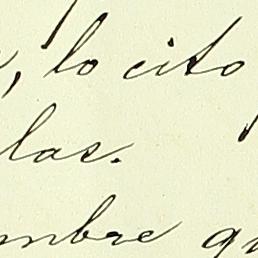 , lo cito
las.
mbre qu